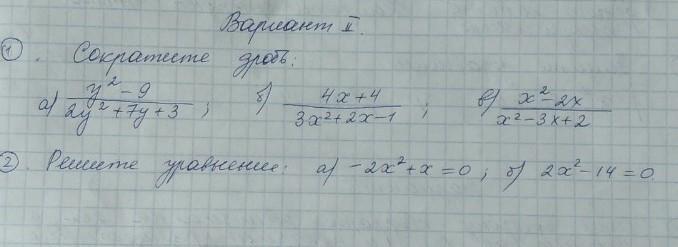 Вариант II.
1. Сократите дробь:
а) (y² - 9)/(2y² + 7y + 3); б) (4x + 4)/(3x² + 2x - 1); в) (x² - 2x)/(x² - 3x + 2)
2. Решите уравнение: а) -2x² + x = 0; б) 2x² - 14 = 0